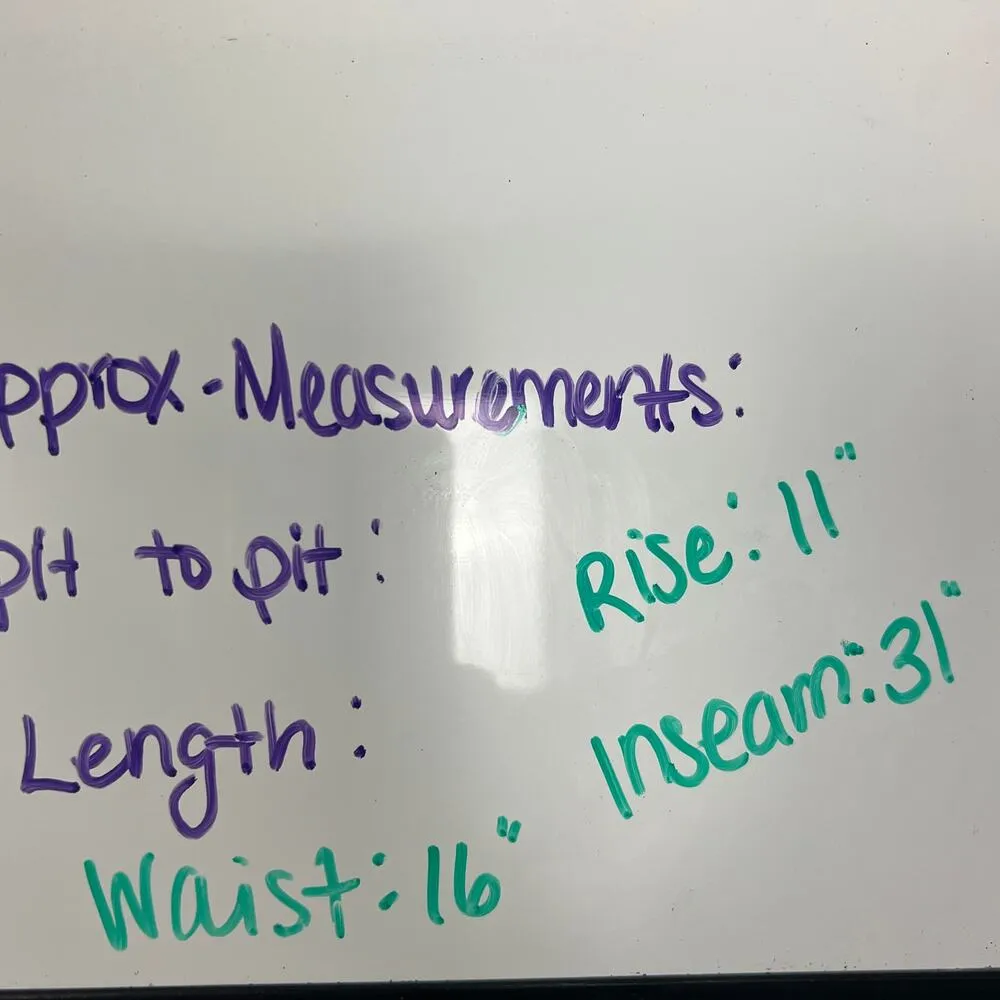 pprox. Measurements:
pit to pit:
Rise: 11"
Length:
Inseam: 31"
Waist: 16"